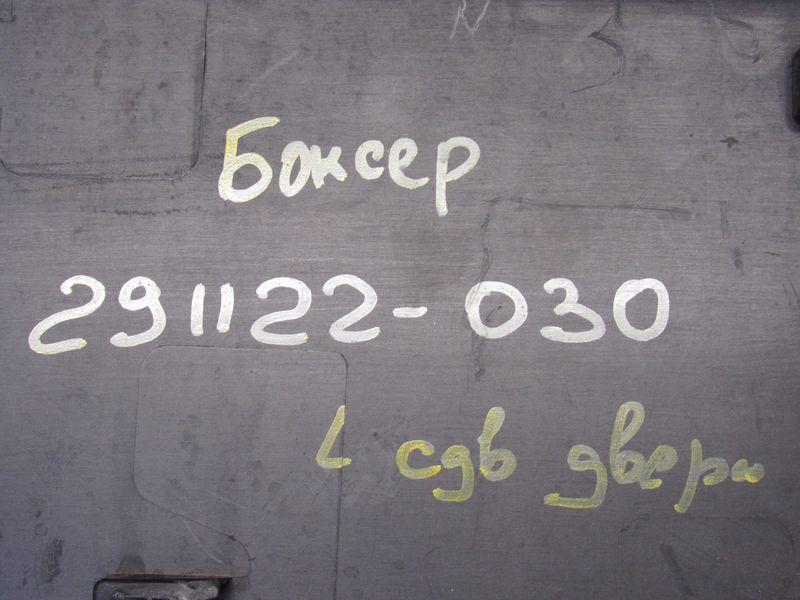 Боксер
291122-030
L сдв двери